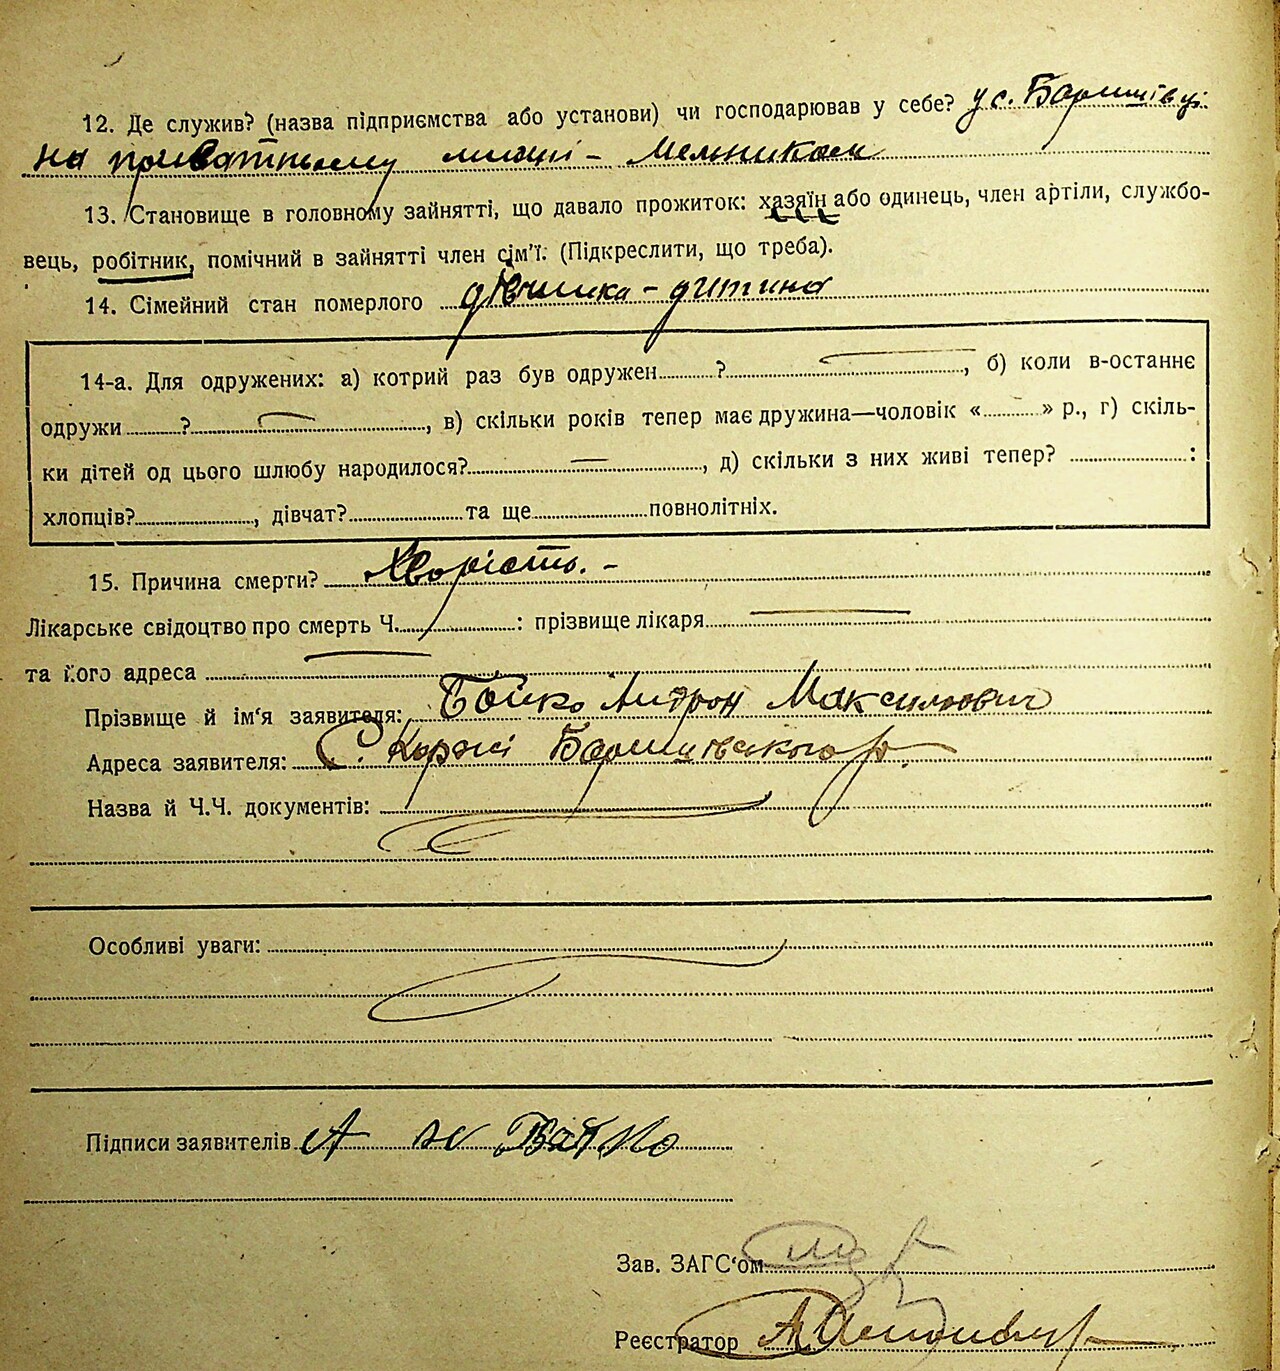 12. Де служив? (назва підприємства або установи) чи господарював у себе? у с. Баришівці
на приватньому млині - Мельником
13. Становище в головному зайнятті, що давало прожиток: хазяїн або одинець, член артіли, службо-
вець, робітник, помічний в зайнятті член сім'ї. (Підкреслити, що треба).
14. Сімейний стан померлого дівчинка - дитина
14-а. Для одружених: а) котрий раз був одружен ? , б) коли в-останнє
одружи ? , в) скільки років тепер має дружина—чоловік « » р., г) скіль-
ки дітей од цього шлюбу народилося? — , д) скільки з них живі тепер? :
хлопців? , дівчат? та ще повнолітніх.
15. Причина смерти? Хворість. -
Лікарське свідоцтво про смерть Ч. : прізвище лікаря —
та його адреса —
Прізвище й ім'я заявителя: Бойко Андрон Максимович
Адреса заявителя: С. Коржі Баришівського р.
Назва й Ч.Ч. документів:
Особливі уваги:
Підписи заявителів А м Бойко
Зав. ЗАГС'ом
Реєстратор